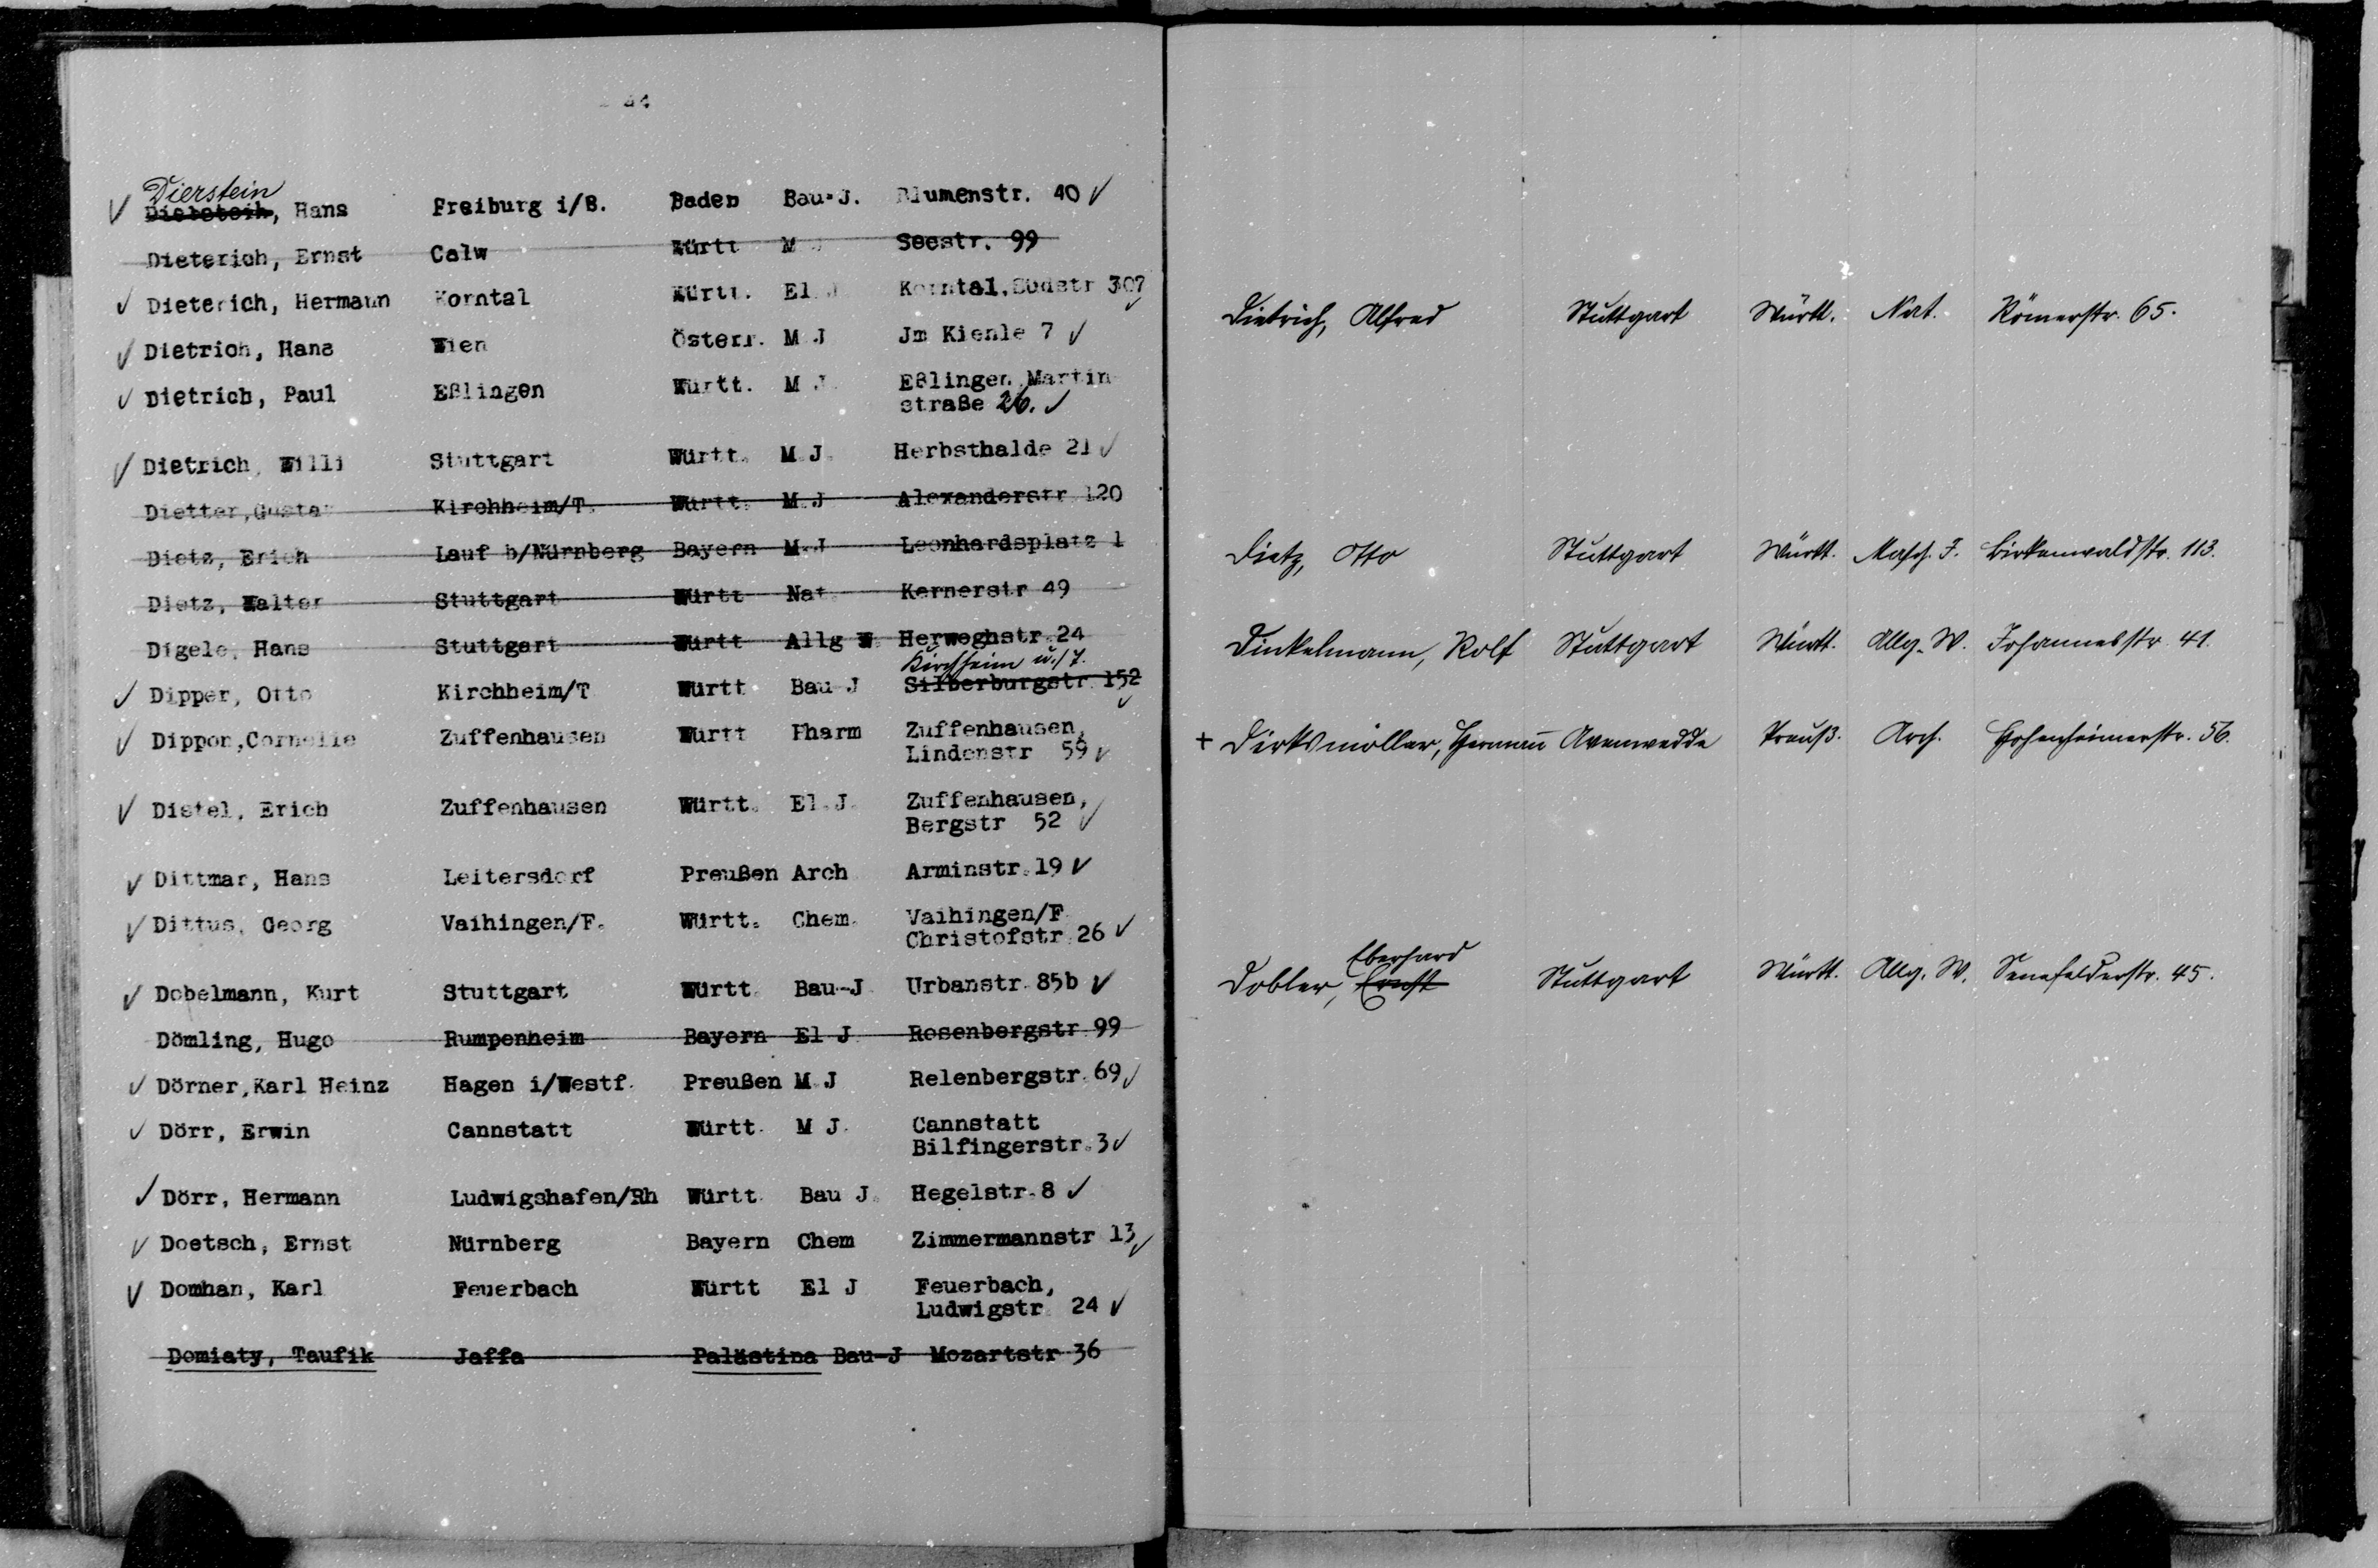 Dierstein
Hans Freiburg i/B. Baden Bau-J. Blumenstr. 40 ✓
Dieterich, Ernst Calw Württ M J Seestr. 99
✓ Dieterich, Hermann Korntal Württ. El J Korntal, Südstr 307 ✓
✓ Dietrich, Hans Wien Österr. M J Jm Kienle 7 ✓
✓ Dietrich, Paul Eßlingen Württ. M J. Eßlingen, Martin
straße 26. ✓
✓ Dietrich, Willi Stuttgart Württ. M.J. Herbsthalde 21 ✓
Dietter, Gustav Kirchheim/T. Württ. M.J Alexanderstr. 120
Dietz, Erich Lauf b/Nürnberg Bayern M.J Leonhardsplatz 1
Dietz, Walter Stuttgart Württ Nat. Kernerstr 49
Digele, Hans Stuttgart Württ Allg W. Herweghstr. 24
Kirchheim u./T.
✓ Dipper, Otto Kirchheim/T Württ. Bau J Silberburgstr. 152 ✓
✓ Dippon, Cornelie Zuffenhausen Württ Pharm Zuffenhausen,
Lindenstr 59 ✓
✓ Distel, Erich Zuffenhausen Württ. El.J. Zuffenhausen,
Bergstr 52 ✓
✓ Dittmar, Hans Leitersdorf Preußen Arch Arminstr. 19 ✓
✓ Dittus, Georg Vaihingen/F. Württ. Chem. Vaihingen/F.
Christofstr. 26 ✓
✓ Dobelmann, Kurt Stuttgart Württ. Bau-J Urbanstr. 85b ✓
Dömling, Hugo Rumpenheim Bayern El J Rosenbergstr. 99
✓ Dörner, Karl Heinz Hagen i/Westf. Preußen M.J Relenbergstr. 69 ✓
✓ Dörr, Erwin Cannstatt Württ. M J. Cannstatt
Bilfingerstr. 3 ✓
✓ Dörr, Hermann Ludwigshafen/Rh Württ. Bau J. Hegelstr. 8 ✓
✓ Doetsch, Ernst Nürnberg Bayern Chem Zimmermannstr 13 ✓
✓ Domhan, Karl Feuerbach Württ El J Feuerbach,
Ludwigstr. 24 ✓
Domiaty, Taufik Jaffa Palästina Bau-J Mozartstr 36
Dietrich, Alfred Stuttgart Württ. Nat. Römerstr. 65.
Dietz, Otto Stuttgart Württ. Masch. J. Birkenwaldstr. 113.
Dinkelmann, Rolf Stuttgart Württ. Allg. W. Johannesstr. 41.
+ Dirksmöller, Hermann Avenwedde Preuß. Arch. Hohenheimerstr. 56.
Eberhard
Dobler, Ernst Stuttgart Württ. Allg. W. Senefelderstr. 45.